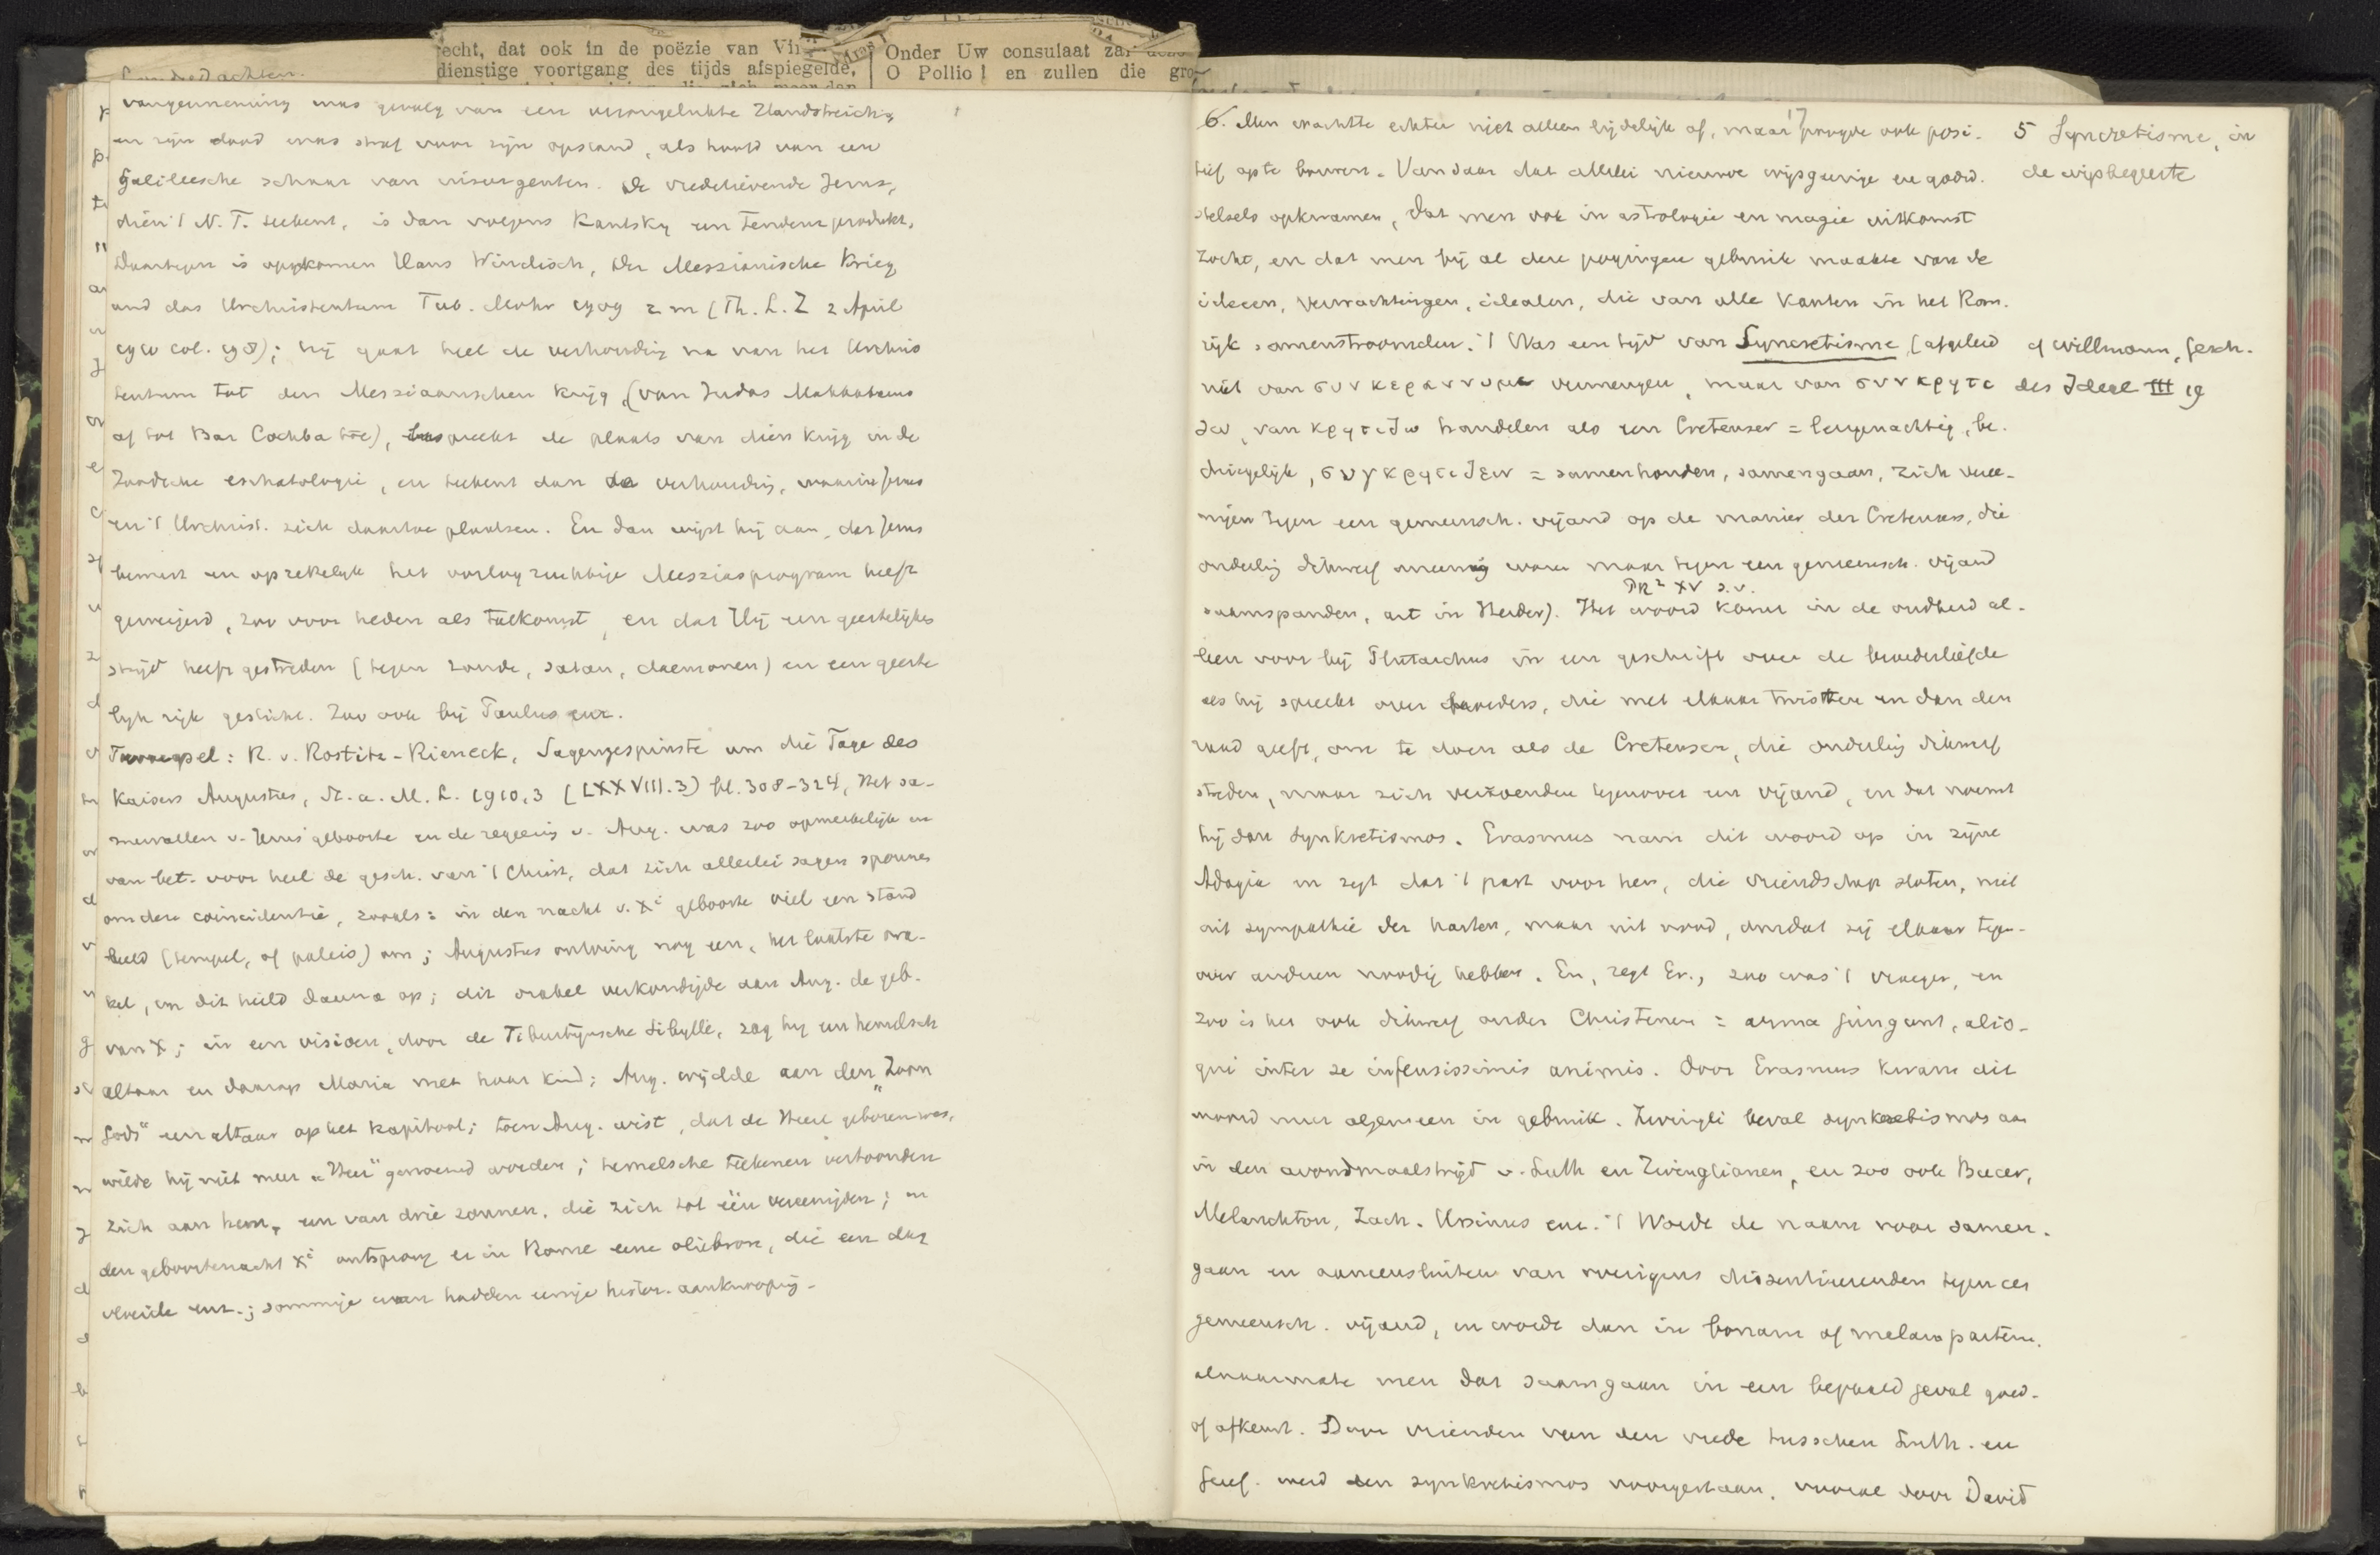 echt, dat ook in de poëzie van Vir
dienstige voortgang des tijds afspiegelde,
Onder Uw consulaat zal deze
O Pollio! en zullen die gro
vangenneming was gevolg van een verongelukte Handstreich,
en zijn dood was straf voor zijn opstand, als hoofd van een
Galileesche schaar van insurgenten. De vredelievende Jezus,
dien 't N. T. teekent, is dan volgens Kautsky een Tendenzprodukt.
Daartegen is opgekomen Hans Windisch, Der Messianische Krieg
und das Urchristentum Tub. Mohr 1909 2 m (Th. L. Z 2 April
1910 col. 198); hij gaat heel de verhouding na van het Urchris
tentum tot den Messiaanschen krijg, (van Judas Makkabaeus
af tot Bar Cochba toe), bespreekt de plaats van dien krijg in de
Joodsche eschatologie, en teekent dan de verhouding, waarin Jezus
en 't Urchrist. zich daartoe plaatsen. En dan wijst hij aan, dat Jezus
bewust en opzettelijk het oorlogzuchtige Messiasprogram heeft
geweigerd, zoo voor heden als toekomst, en dat Hij een geestelijken
strijd heeft gestreden (tegen zonde, satan, daemonen) en een geeste
lijk rijk gesticht. Zoo ook bij Paulus enz.
R. v. Nostitz-Rieneck, Sagengespinste um die Tage des
Kaisers Augustus, St. a. M. L. 1910, 3 (LXXVIII.3) bl. 308-324, Het sa-
menvallen v. Jezus' geboorte en de regeering v. Aug. was zoo opmerkelijk en
van bet. voor heel de gesch. van 't Christ., dat zich allerlei sagen sponnen
om deze coincidentie, zooals: in den nacht v. Xi geboorte viel een stand
beeld (tempel, of paleis) om; Augustus ontving nog een, het laatste ora-
kel, en dit hield daarna op; dit orakel verkondigde aan Aug. de geb.
van X; in een visioen, door de Tiburtijnsche Sibylle, zag hij een hemelsch
altaar en daarop Maria met haar kind; Aug. wijdde aan den „Zoon
Gods" een altaar op het Kapitool; toen Aug. wist, dat de Heere geboren was,
wilde hij niet meer „Heer" genoemd worden; hemelsche teekenen vertoonden
zich aan hem, een van drie zonnen, die zich tot één vereenigden; in
den geboortenacht Xi ontsprong er in Rome eene oliebron, die een dag
vloeide enz.; sommige ervan hadden eenige histor. aanknooping-
17
6. Men wachtte echter niet alleen lijdelijk af, maar poogde ook posi-
tief op te bouwen. Vandaar dat allerlei nieuwe wijsgeerige en godsd.
stelsels opkwamen, dat men ook in astrologie en magie uitkomst
zocht, en dat men bij al deze pogingen gebruik maakte van de
ideeen, verwachtingen, idealen, die van alle kanten in het Rom.
rijk samenstroomden. 't Was een tijd van Syncretisme (afgeleid
niet van συνκεραννυμι vermengen, maar van συνκρητι
ζω, van κρητιζω handelen als een Cretenser = leugenachtig, be-
driegelijk, συγκρητιζειν = samenhouden, samengaan, zich veree-
nigen tegen een gemeensch. vijand op de manier der Cretensers, die
onderling dikwerf oneenig waren maar tegen een gemeensch. vijand
PR² XV s.v.
saamspanden, art in Herder). Het woord komt in de oudheid al-
leen voor bij Plutarchus in een geschrift over de broederliefde
als hij spreekt over broeders, die met elkaar twistten en dan den
raad geeft, om te doen als de Cretensen, die onderling dikwerf
streden, maar zich verzoenden tegenover een vijand, en dat noemt
hij dan synkretismos. Erasmus nam dit woord op in zijne
Adagia en zegt dat 't past voor hen, die vriendschap sloten, niet
uit sympathie der harten, maar uit nood, omdat zij elkaar tegen-
over anderen noodig hebben. En, zegt Er., zoo was 't vroeger, en
zoo is het ook dikwerf onder Christenen = arma jungunt, alio-
qui inter se infensissimis animis. Door Erasmus kwam dit
woord meer algemeen in gebruik. Zwingli beval synkretismos aan
in den avondmaalstrijd v. Luth en Zwinglianen, en zoo ook Bucer,
Melanchton, Zach. Ursinus enz. 't Wordt de naam voor samen-
gaan en aaneensluiten van overigens dissentieerenden tegen een
gemeensch. vijand, en wordt dan in bonam of malam partem,
alnaarmate men dat saamgaan in een bepaald geval goed-
of afkeurt. Door vrienden van den vrede tusschen Luth. en
Geref. werd een synkretismos voorgestaan, vooral door David
5 Syncretisme, in
de wijsbegeerte
cf Willmann, Gesch.
des Ideal III 19